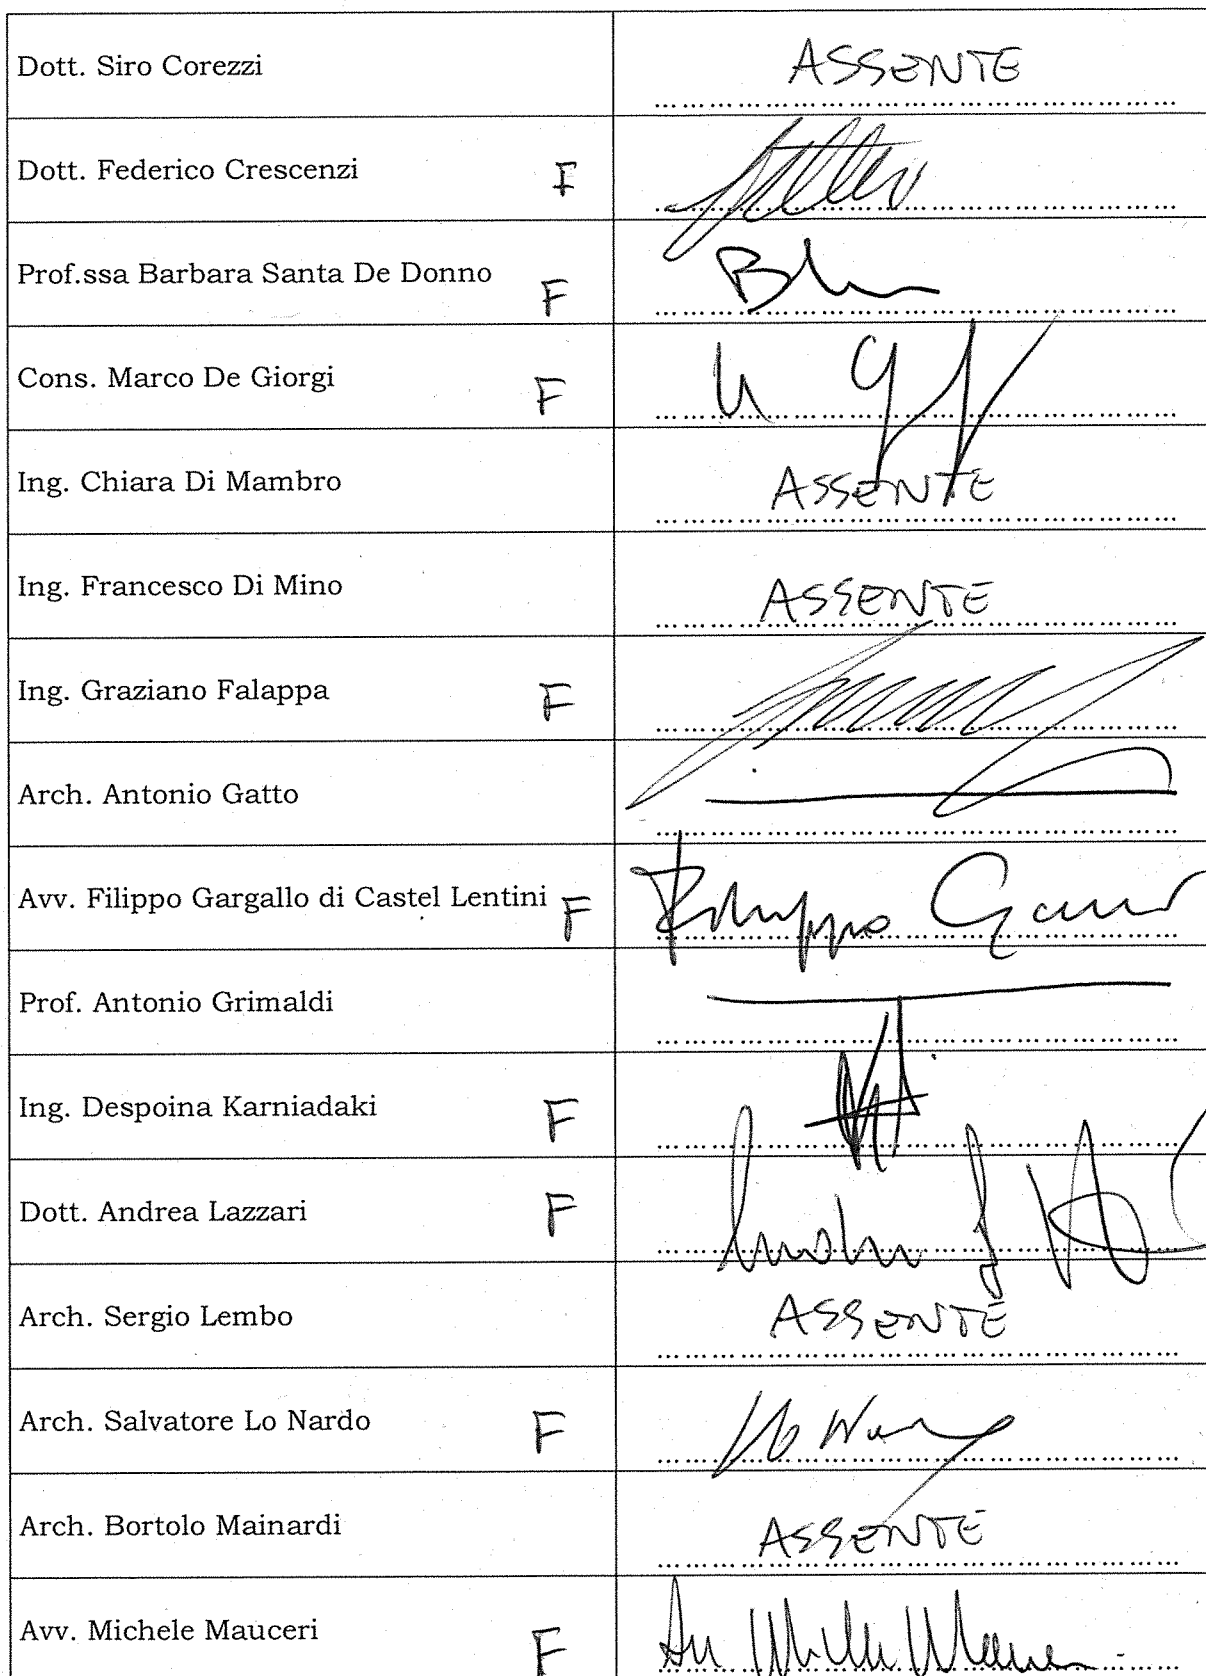 Dott. Siro Corezzi ASSENTE
Dott. Federico Crescenzi F
Prof.ssa Barbara Santa De Donno F
Cons. Marco De Giorgi F
Ing. Chiara Di Mambro ASSENTE
Ing. Francesco Di Mino ASSENTE
Ing. Graziano Falappa F
Arch. Antonio Gatto
Avv. Filippo Gargallo di Castel Lentini F Filippo
Prof. Antonio Grimaldi
Ing. Despoina Karniadaki F
Dott. Andrea Lazzari F
Arch. Sergio Lembo ASSENTE
Arch. Salvatore Lo Nardo F
Arch. Bortolo Mainardi ASSENTE
Avv. Michele Mauceri F